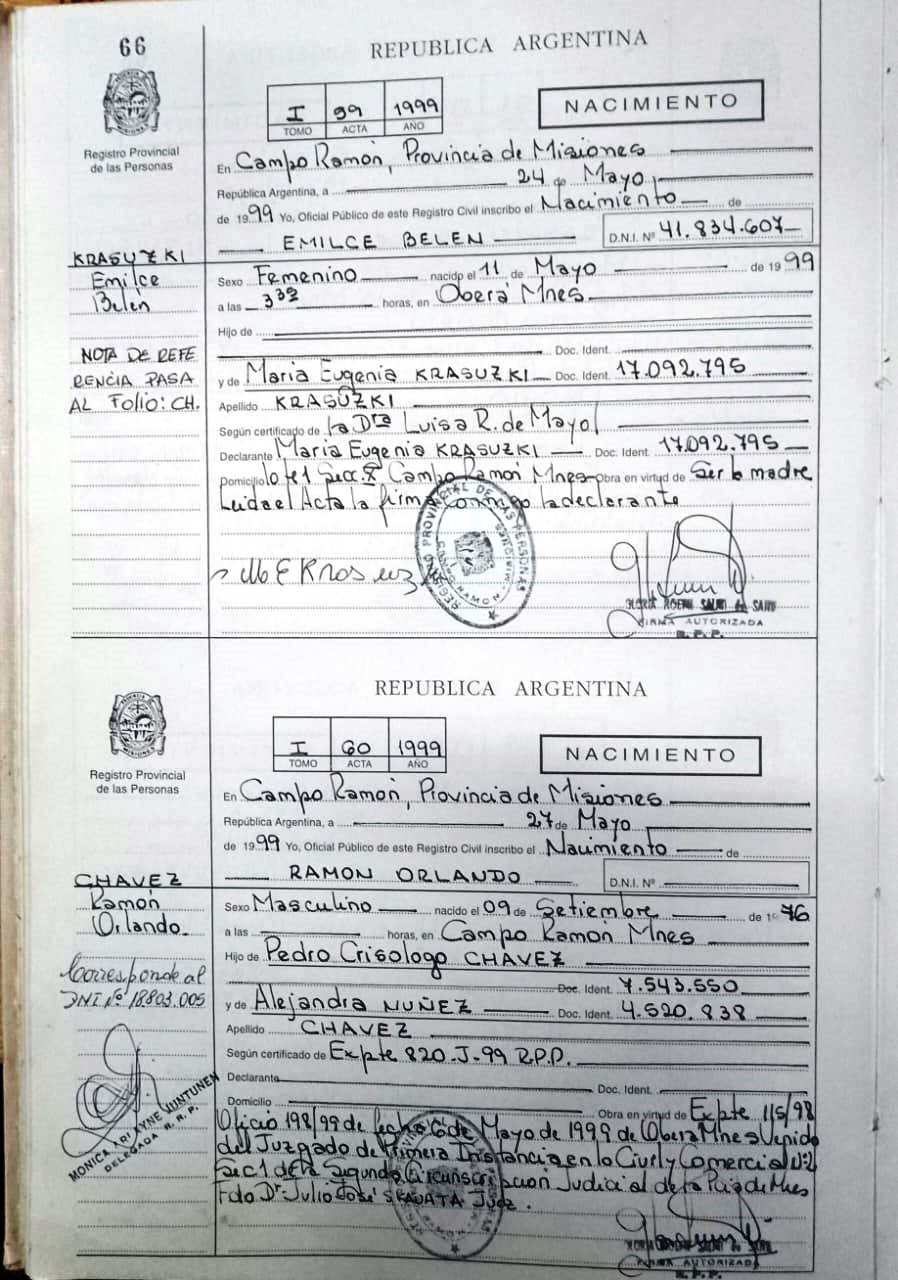 66
REPUBLICA ARGENTINA
Registro Provincial
de las Personas
I 59 1999
TOMO ACTA AÑO
NACIMIENTO
En Campo Ramón, Provincia de Misiones
República Argentina, a 24 de Mayo
de 1999 Yo, Oficial Público de este Registro Civil inscribo el Nacimiento de
EMILCE BELEN D.N.I. Nº 41.834.607
KRASUZKI
Emilce
Belen
NOTA DE REFE
RENCIA PASA
AL Folio: CH.
Sexo Femenino nacido el 11 de Mayo de 1999
a las 3 30 horas, en Oberá Mnes
Hijo de
Doc. Ident.
y de Maria Eugenia KRASUZKI Doc. Ident. 17.092.795
Apellido KRASUZKI
Según certificado de la Dra Luisa R. de Mayol
Declarante Maria Eugenia KRASUZKI Doc. Ident. 17.092.795
Domicilio lote 1 Secc. 8ª Campo Ramón Mnes Obra en virtud de Ser la madre
Leida el Acta la firma conmigo la declarante
REGISTRO PROVINCIAL DE LAS PERSONAS
CAMPO RAMON MISIONES
FIRMA AUTORIZADA
R. P. P.
REPUBLICA ARGENTINA
Registro Provincial
de las Personas
I 60 1999
TOMO ACTA AÑO
NACIMIENTO
En Campo Ramón, Provincia de Misiones
República Argentina, a 27 de Mayo
de 1999 Yo, Oficial Público de este Registro Civil inscribo el Nacimiento de
RAMON ORLANDO D.N.I. Nº
CHAVEZ
Ramón
Orlando
Corresponde al
DNI Nº 18803.005
MONICA
DELEGADA R. P. P.
Sexo Masculino nacido el 09 de Setiembre de 1976
a las horas, en Campo Ramón Mnes
Hijo de Pedro Crisologo CHAVEZ
Doc. Ident. 7.543.550
y de Alejandra NUÑEZ Doc. Ident. 4.520.838
Apellido CHAVEZ
Según certificado de Expte 820-J-99 R.P.P.
Declarante Doc. Ident.
Domicilio Obra en virtud de Expte 115/98
Oficio 198/99 de fecha 6 de Mayo de 1999 de Obera Mnes Venido
del Juzgado de Primera Instancia en lo Civil y Comercial Nº2
Sec 1 de la Segunda Circunscripcion Judicial de la Pcia de Mnes
Fdo Dr Julio José Juez.
FIRMA AUTORIZADA
R. P. P.